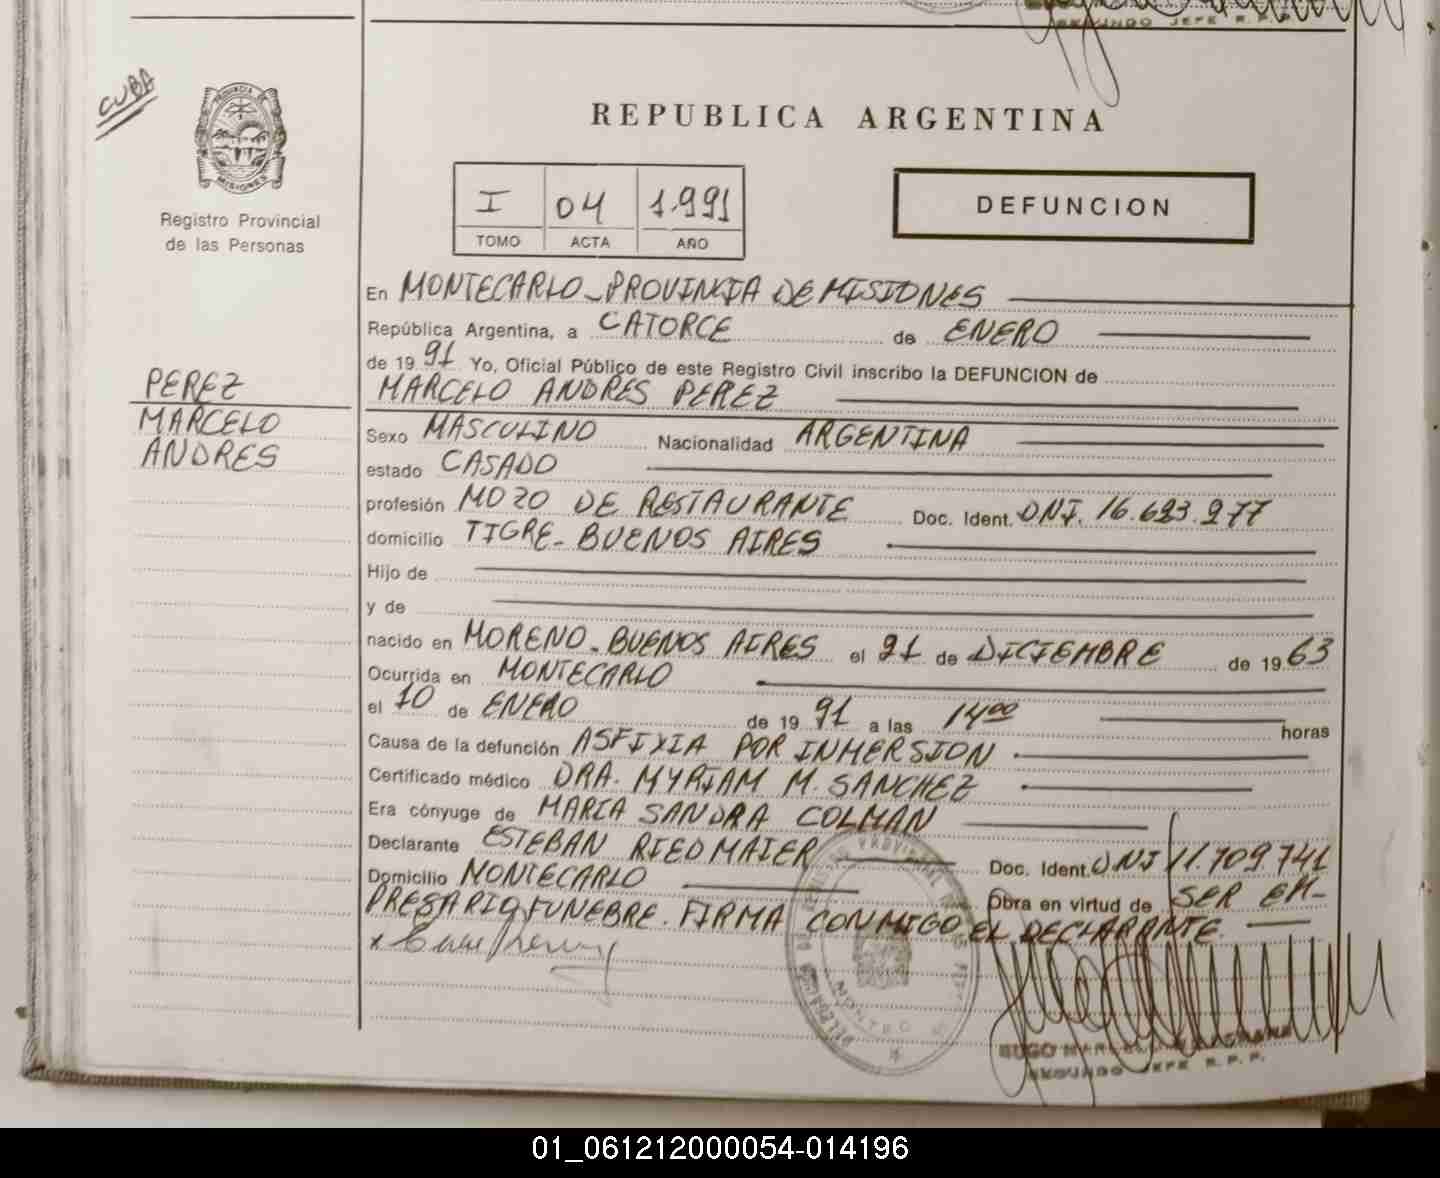 SEGUNDO JEFE R.P.P.
CUBA
PROVINCIA DE
MISIONES
Registro Provincial
de las Personas
REPUBLICA ARGENTINA
I 04 1.991
TOMO ACTA AÑO
DEFUNCION
En MONTECARLO - PROVINCIA DE MISIONES
República Argentina, a CATORCE de ENERO
de 19 91 Yo, Oficial Público de este Registro Civil inscribo la DEFUNCION de
MARCELO ANDRES PEREZ
PEREZ
MARCELO
ANDRES
Sexo MASCULINO Nacionalidad ARGENTINA
estado CASADO
profesión MOZO DE RESTAURANTE Doc. Ident. DNI. 16.623.977
domicilio TIGRE - BUENOS AIRES
Hijo de
y de
nacido en MORENO - BUENOS AIRES el 21 de DICIEMBRE de 19 63
Ocurrida en MONTECARLO
el 10 de ENERO de 19 91 a las 14 00 horas
Causa de la defunción ASFIXIA POR INMERSION
Certificado médico DRA. MYRIAM M. SANCHEZ
Era cónyuge de MARIA SANDRA COLMAN
Declarante ESTEBAN RIEDMAIER Doc. Ident. DNI 11.709.741
Domicilio MONTECARLO Obra en virtud de SER EM-
PRESARIO FUNEBRE. FIRMA CONMIGO EL DECLARANTE.
HUGO
SEGUNDO JEFE R.P.P.
01_061212000054-014196